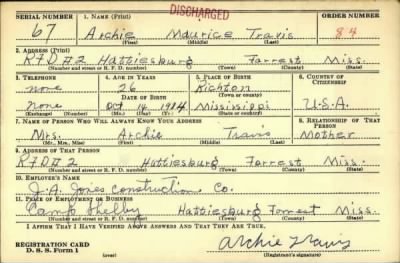 DISCHARGED
SERIAL NUMBER 1. NAME (Print) ORDER NUMBER
67 Archie Maurice Travis 84
(First) (Middle) (Last)
2. ADDRESS (Print)
RFD#2 Hattiesburg Forrest Miss.
(Number and street or R. F. D. number) (Town) (County) (State)
3. TELEPHONE 4. AGE IN YEARS 5. PLACE OF BIRTH 6. COUNTRY OF CITIZENSHIP
none 26 Richton
DATE OF BIRTH (Town or county)
none Oct 14 1914 Mississippi U.S.A.
(Mo.) (Day) (Yr.) (State or country)
7. NAME OF PERSON WHO WILL ALWAYS KNOW YOUR ADDRESS 8. RELATIONSHIP OF THAT PERSON
Mrs. Archie Travis Mother
(Mr., Mrs., Miss) (First) (Middle) (Last)
9. ADDRESS OF THAT PERSON
RFD#2 Hattiesburg Forrest Miss.
(Number and street or R. F. D. number) (Town) (County) (State)
10. EMPLOYER'S NAME
J.A. Jones Construction Co.
11. PLACE OF EMPLOYMENT OR BUSINESS
Camp Shelby Hattiesburg Forrest Miss
(Number and street or R. F. D. number) (Town) (County) (State)
I AFFIRM THAT I HAVE VERIFIED ABOVE ANSWERS AND THAT THEY ARE TRUE.
REGISTRATION CARD
D. S. S. Form 1 (over) Archie Travis
(Registrant's signature)